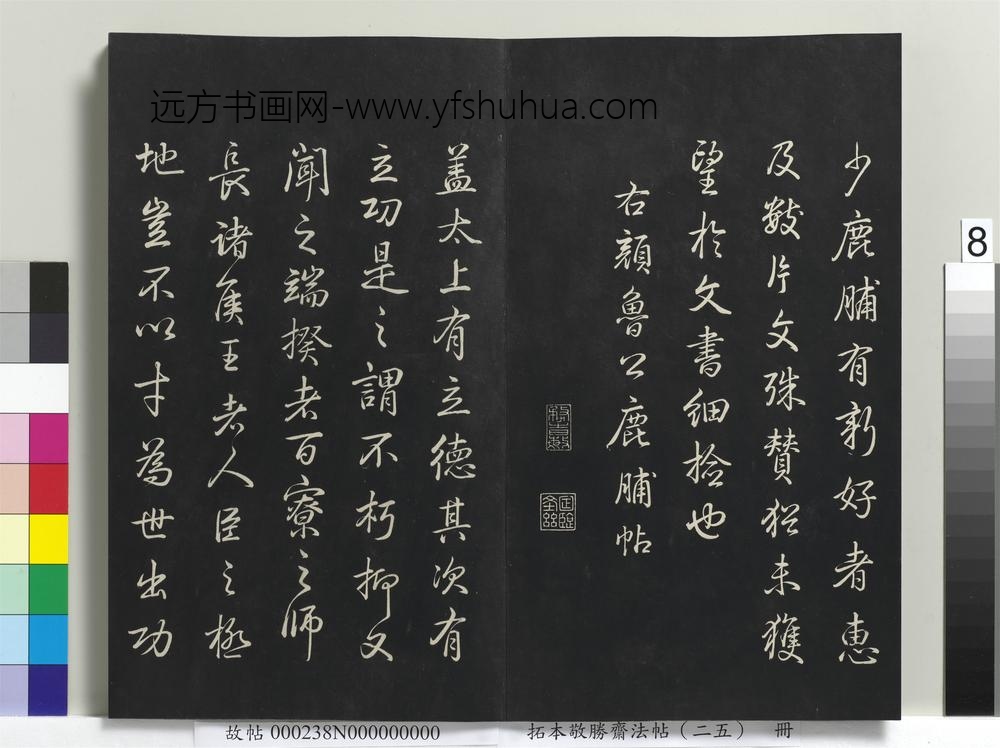 远方书画网-www.yfshuhua.com
少鹿脯有新好者惠
及數片文殊贊猶未獲
望於文書細捡也
右顏魯公鹿脯帖
蓋太上有立德其次有
立功是之謂不朽抑又
聞之端揆者百寮之師
長諸侯王者人臣之極
地豈不以才為世出功
8
故帖 000238N000000000
拓本敬勝齋法帖（二五） 冊